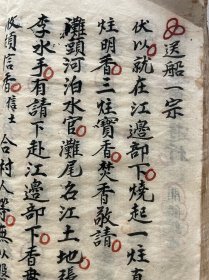 送船一宗
伏以就在江邊部下燒起一炷真
炷明香三炷寶香焚香敬請
灘頭河泊水官灘尾名江土地張
李水手有請下赴江邊部下香
信香信士合村人等